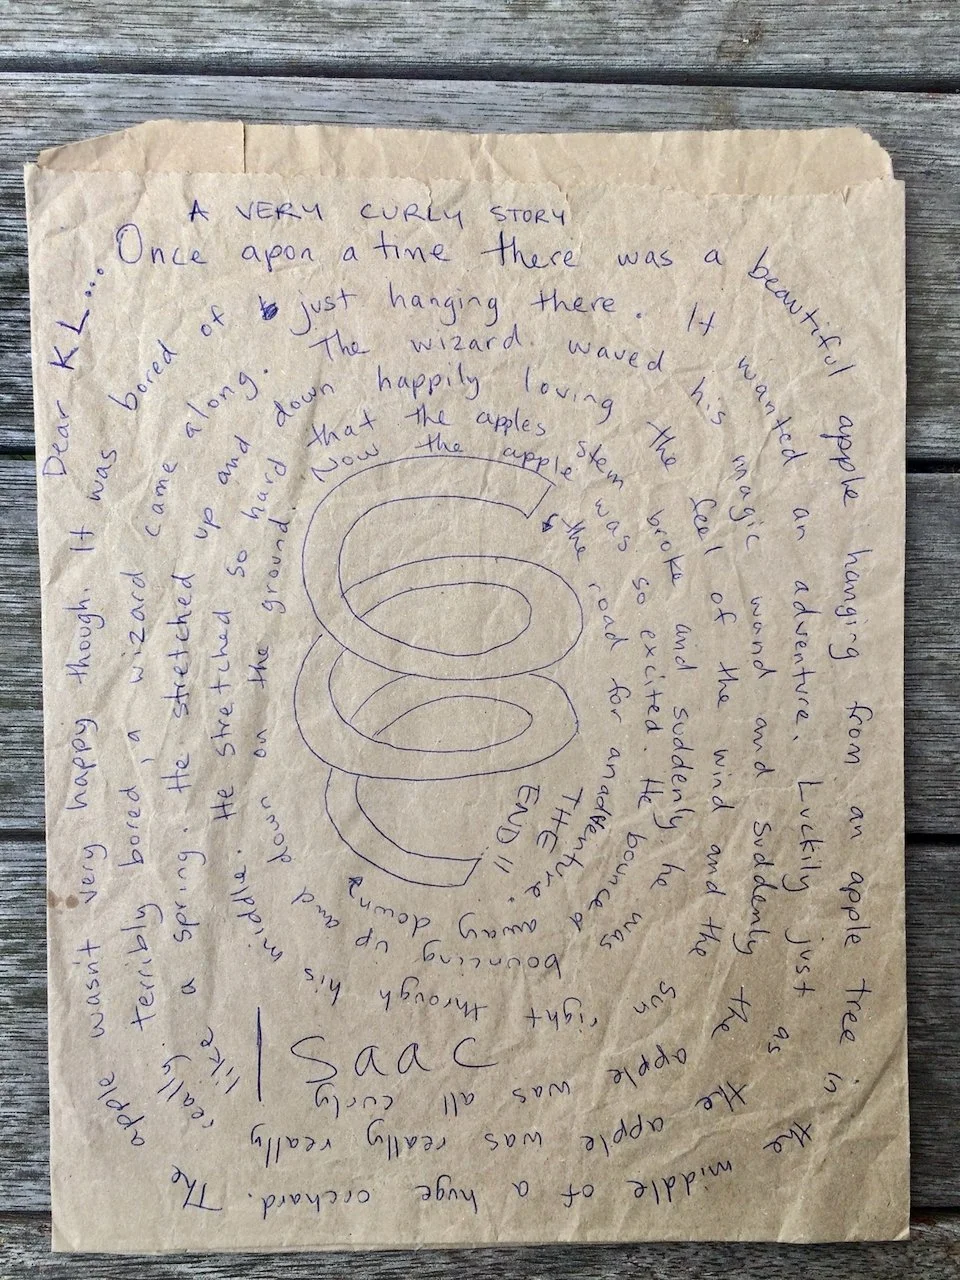 A VERY CURLY STORY
Dear KL...
Once apon a time there was a beautiful apple hanging from an apple tree in the middle of a huge orchard. The apple wasn't very happy though. It was bored of just hanging there. It wanted an adventure. Luckily just as the apple was really really terribly bored, a wizard came along. The wizard waved his magic wand and suddenly the apple was all curly like a spring. He stretched up and down happily loving the feel of the wind and the sun right through his middle. He stretched so hard that the apples stem broke and suddenly he was bouncing up and down on the ground. Now the apple was so excited. He bounced away down the road for an adventure.
THE
END!!
Isaac